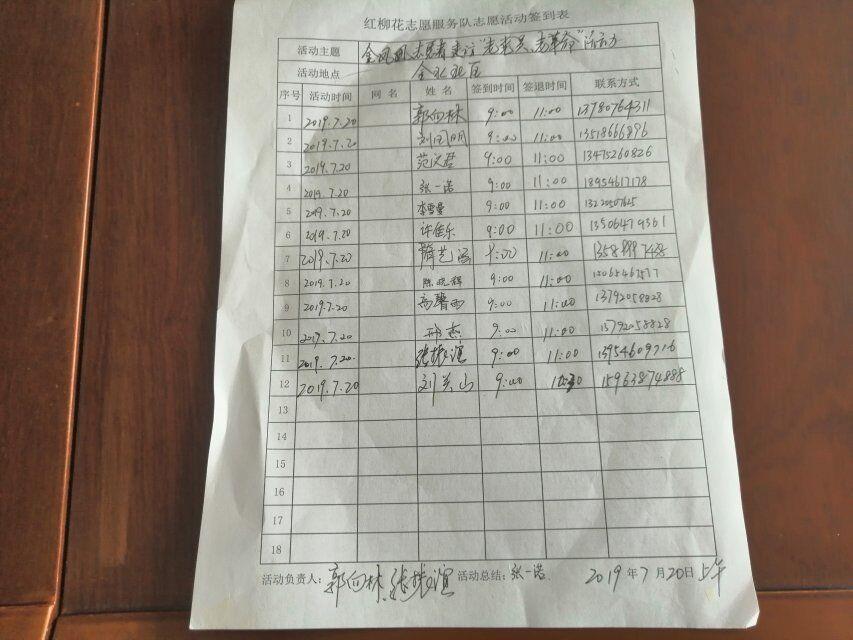 红柳花志愿服务队志愿活动签到表
活动主题
活动地点
序号 活动时间 网名 姓名 签到时间 签退时间 联系方式
1 2019.7.20 郭向林 9:00 11:00 13780764311
2 2019.7.20 9:00 11:00 13518666896
3 2019.7.20 范汉君 9:00 11:00 13475260826
4 2019.7.20 张一诺 9:00 11:00 18954617178
5 2019.7.20 李雪曼 9:00 11:00
6 2019.7.20 许佳乐 9:00 11:00 13506479361
7 2019.7.20 薛艺涵 9:00 11:00
8 2019.7.20 陈晓辉 9:00 11:00
9 2019.7.20 高馨雨 9:00 11:00 13792058828
10 2019.7.20 邢杰 9:00 11:00 13792058828
11 2019.7.20 张振谊 9:00 11:00 13954609716
12 2019.7.20 刘关山 9:00 15963874888
13
14
15
16
17
18
活动负责人: 郭向林 张振谊 活动总结: 张一诺 2019年7月20日上午